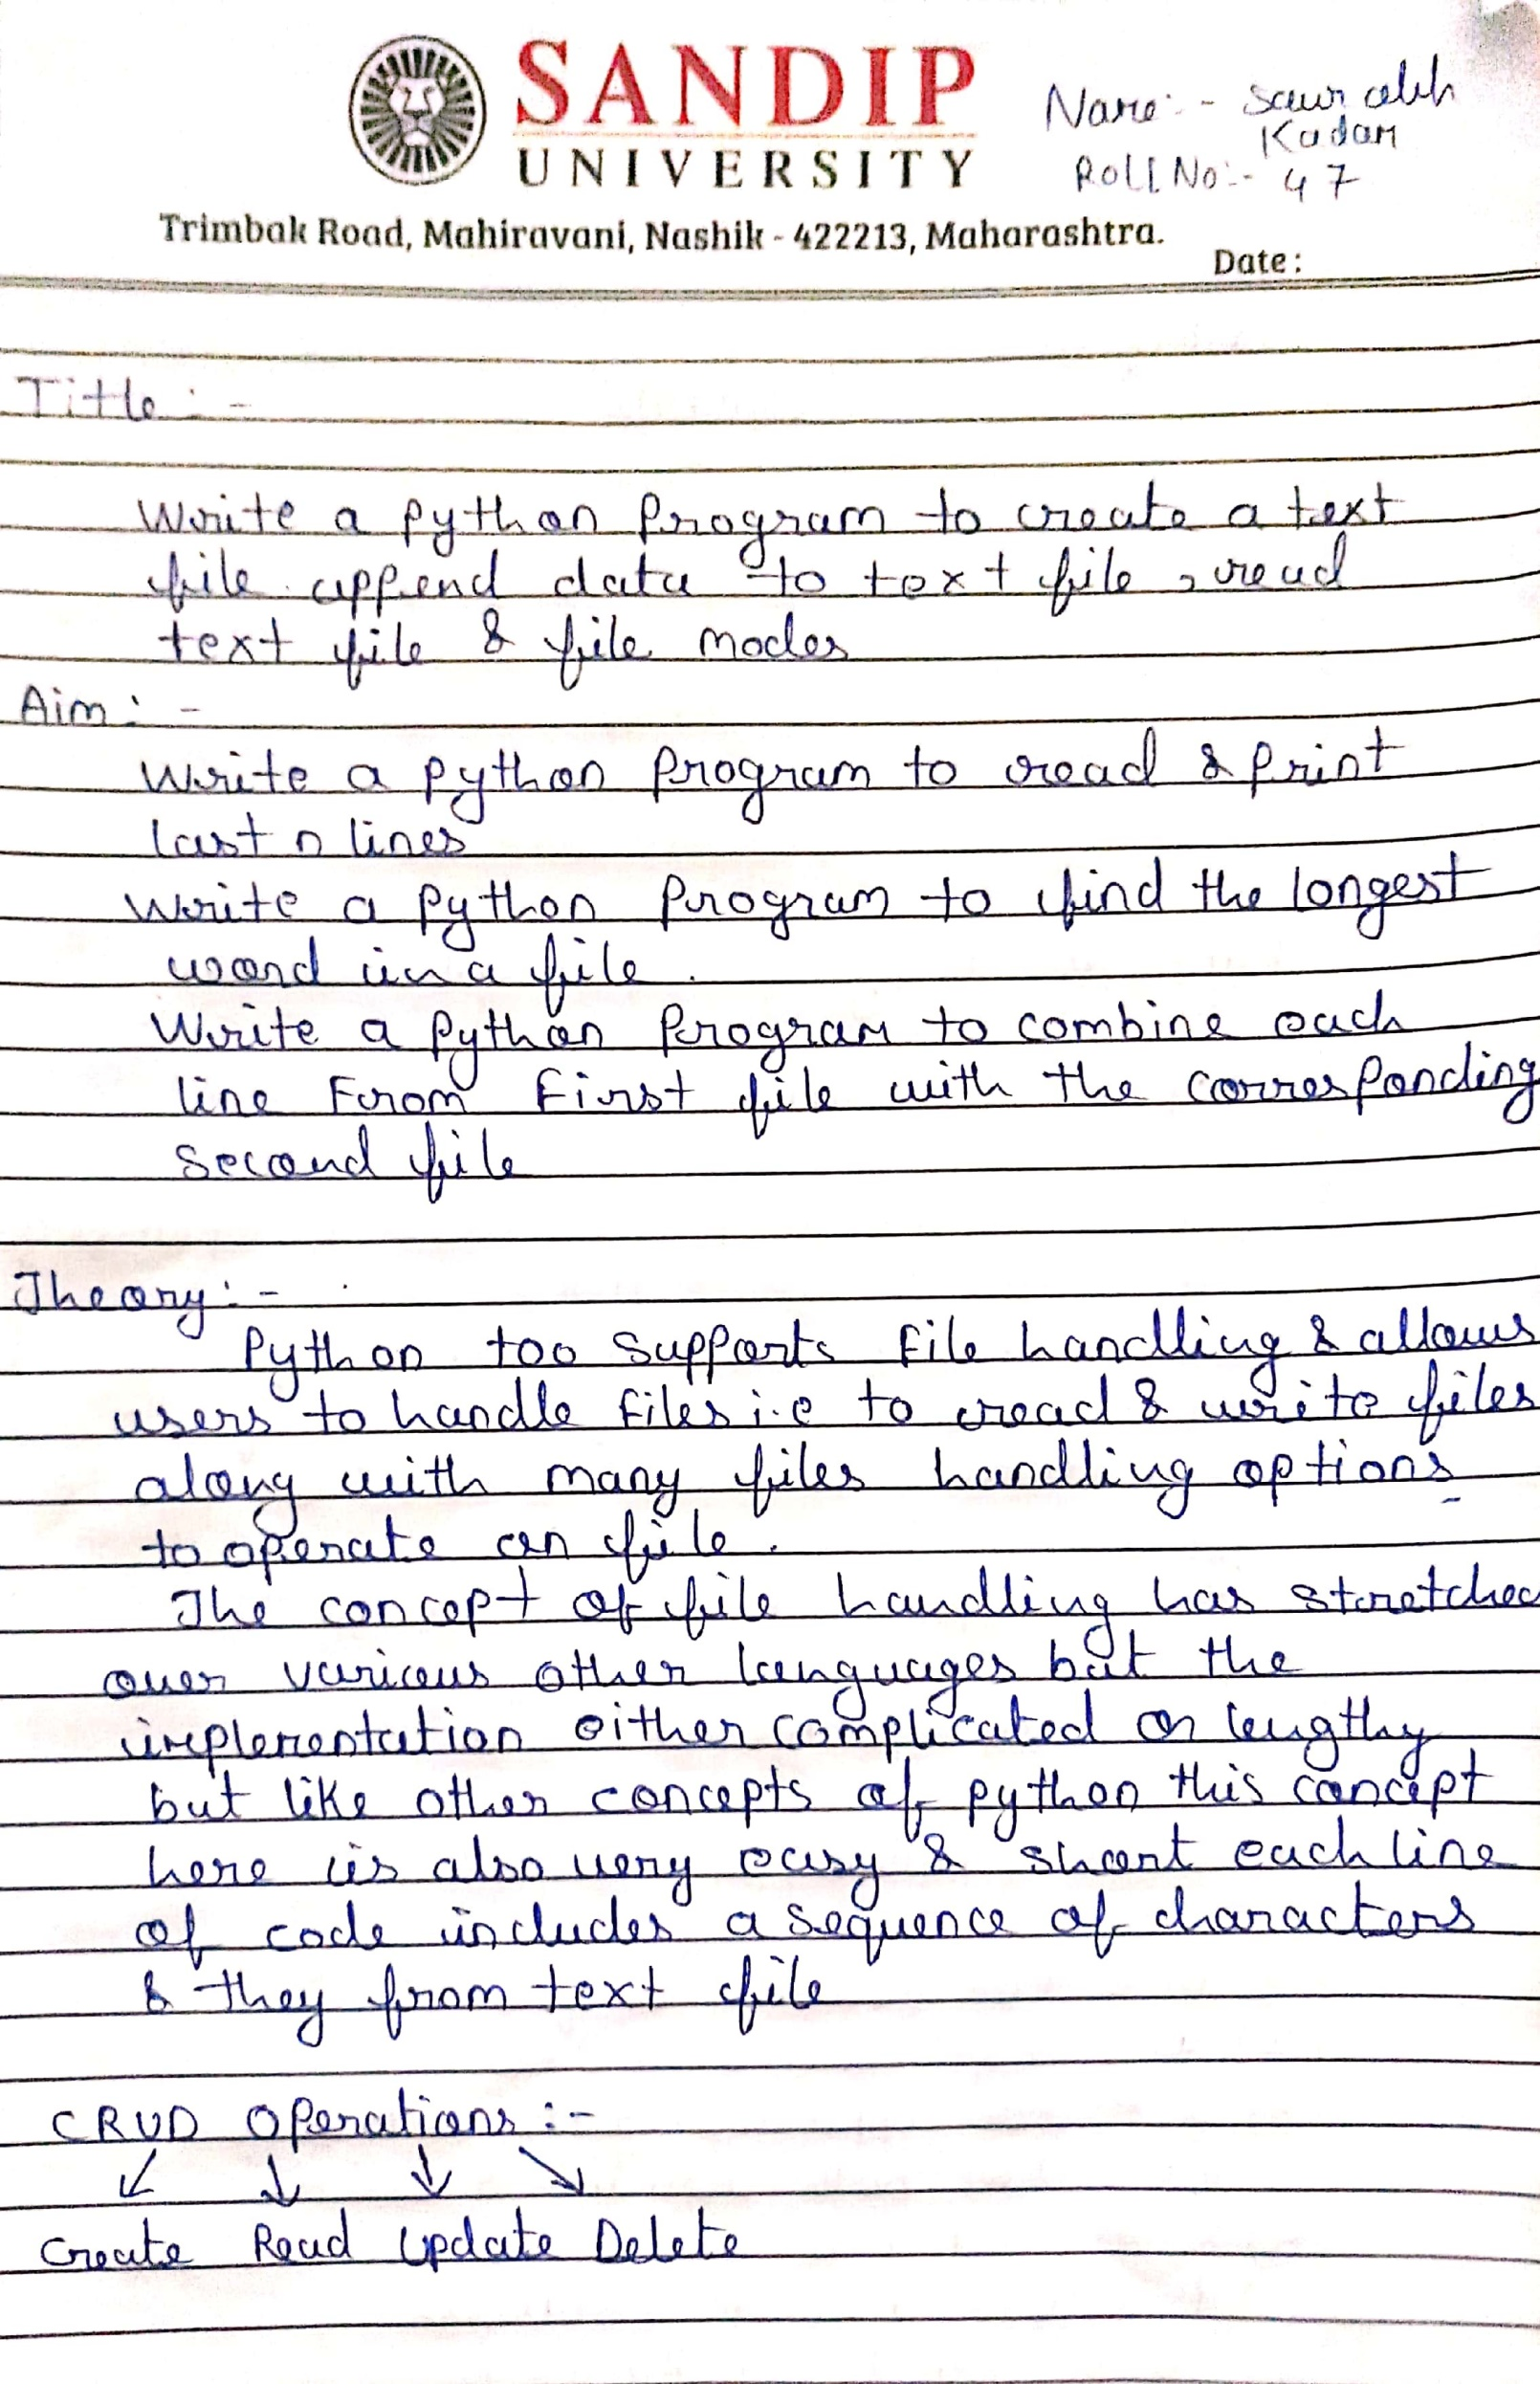 SANDIP
UNIVERSITY
Name:- Saurabh
Kadam
Roll No:- 47
Trimbak Road, Mahiravani, Nashik - 422213, Maharashtra.
Date:
Title:-
Write a python program to create a text
file append data to text file, read
text file & file modes
Aim:-
Write a python program to read & print
last n lines
Write a python program to find the longest
word in a file.
Write a python program to combine each
line From First file with the corresponding
second file
Theory:-
Python too supports file handling & allows
users to handle files i.e to read & write files
along with many files handling options
to operate on file.
The concept of file handling has stretched
over various other languages but the
implementation either complicated or lengthy
but like other concepts of python this concept
here is also very easy & short each line
of code includes a sequence of characters
& they from text file
CRUD Operations:-
↙ ↓ ↓ ↘
Create Read Update Delete